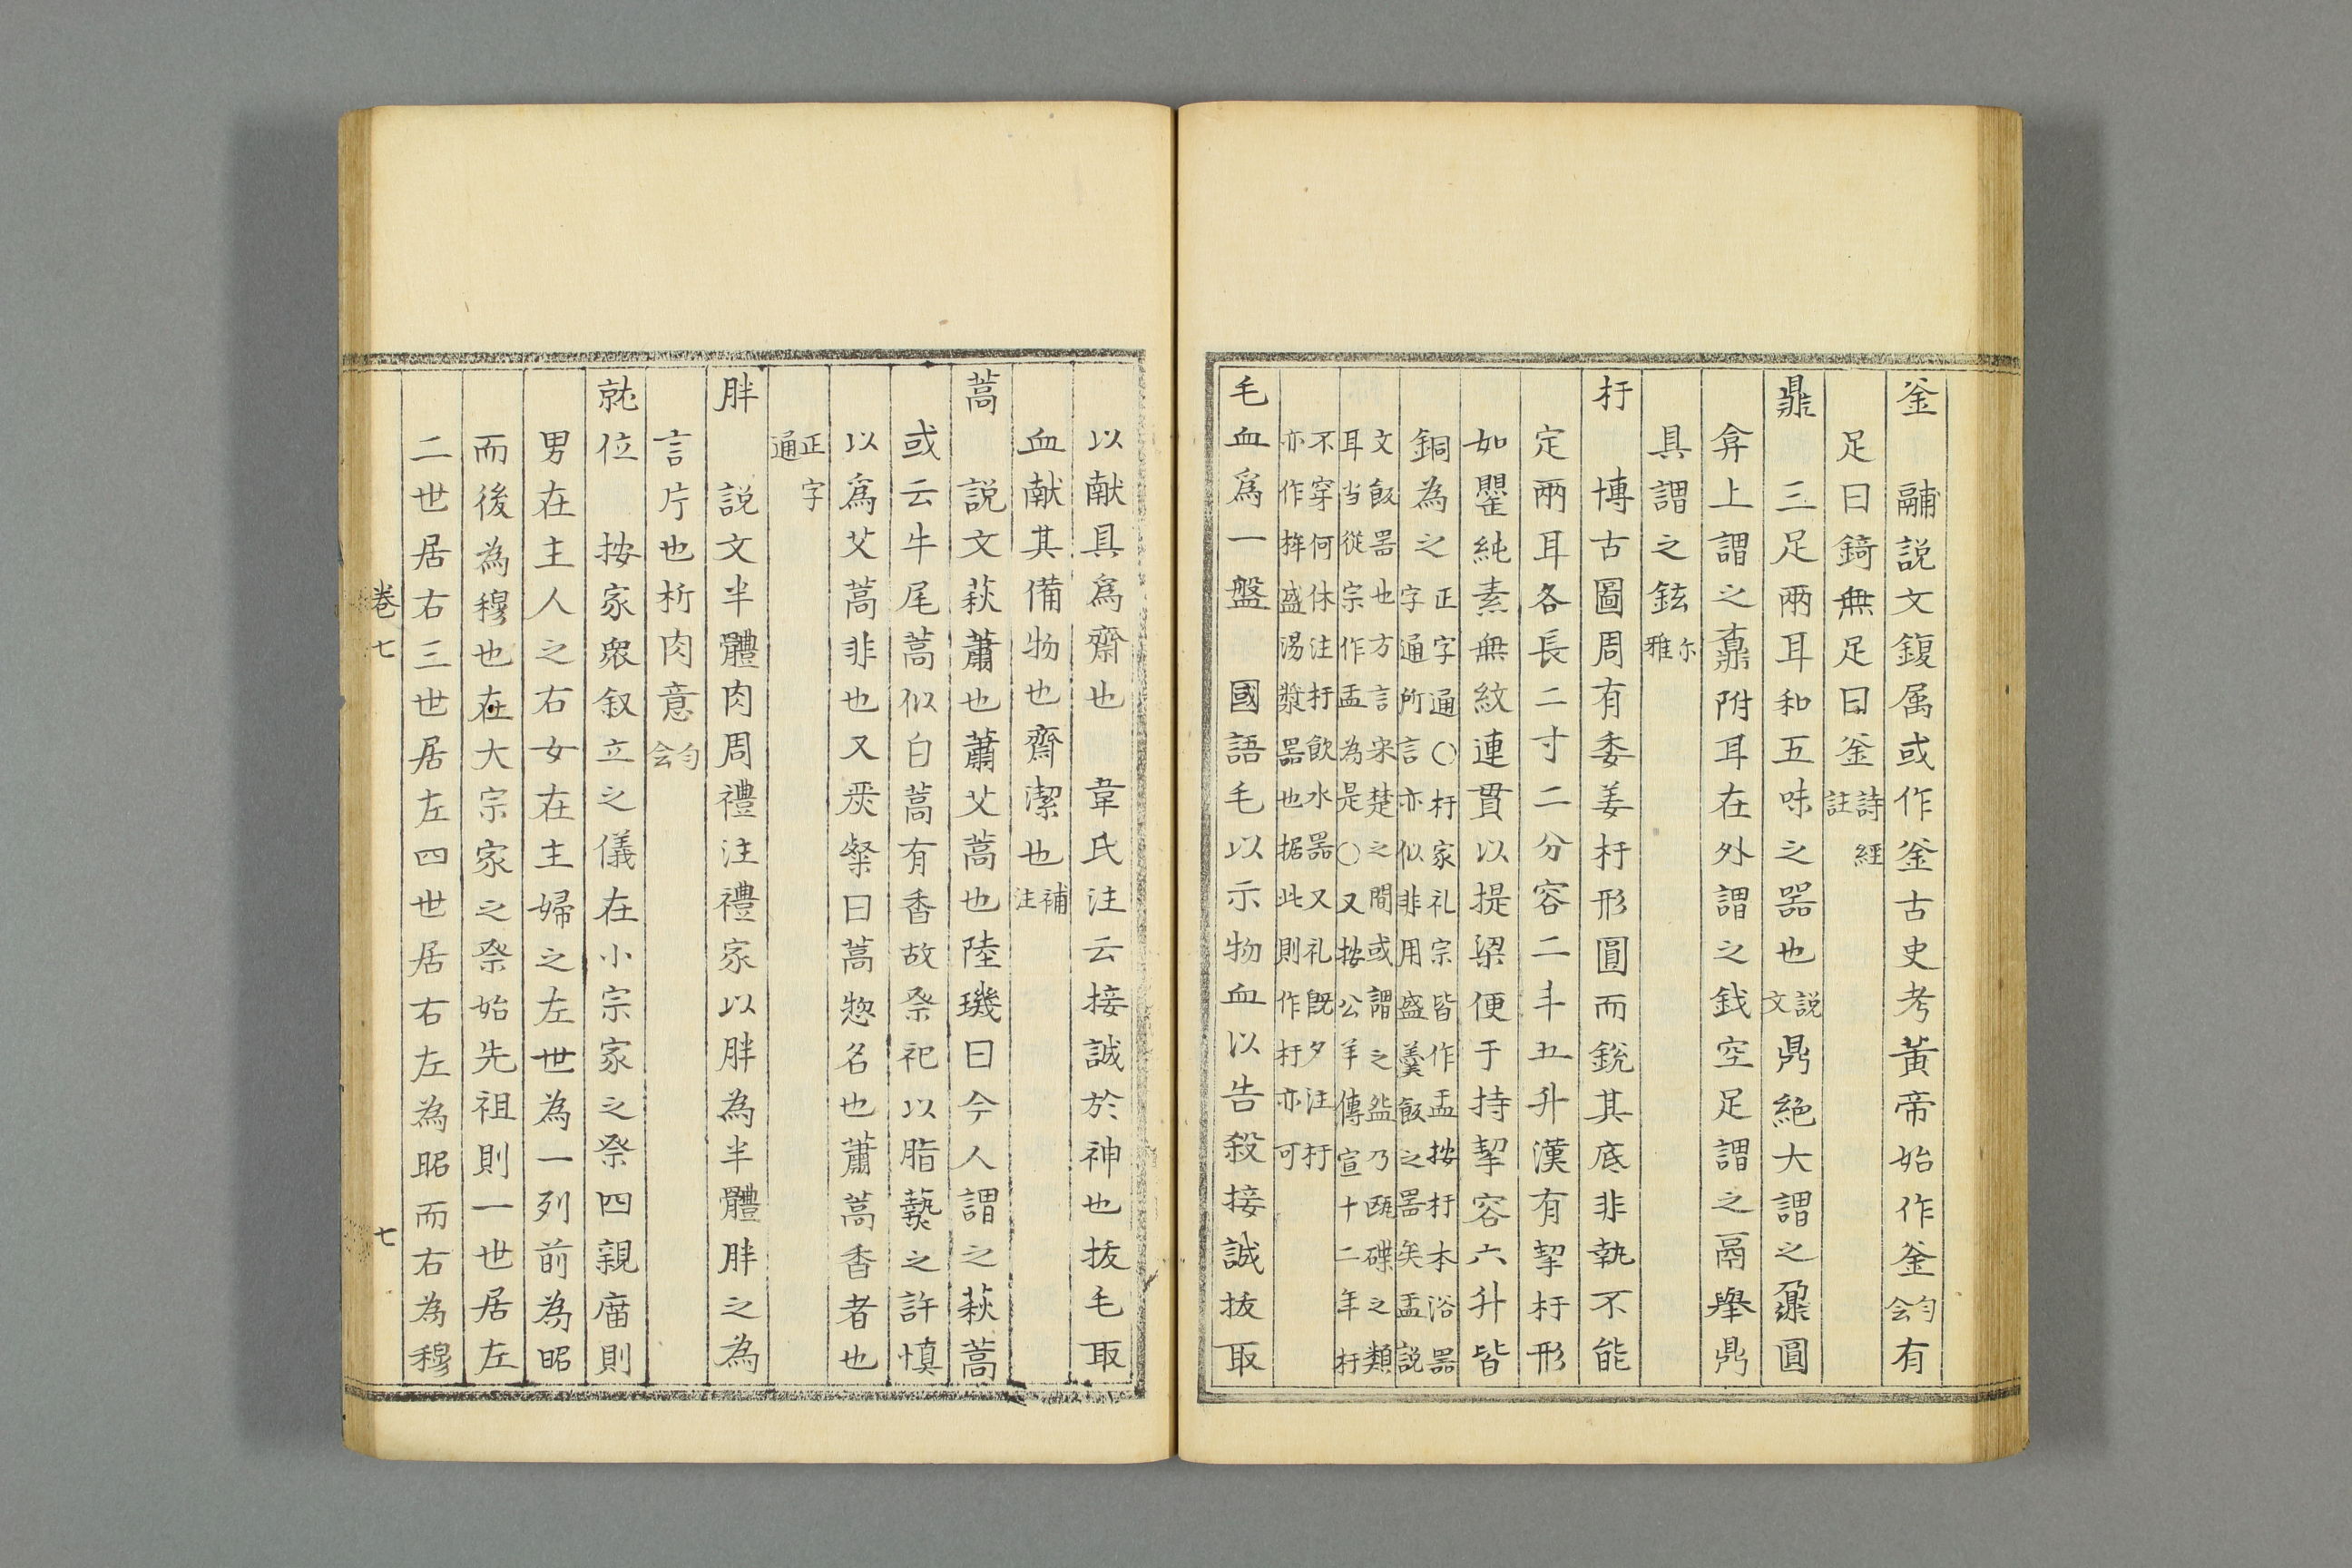 釜 鬴説文鍑属或作釜古史考黃帝始作釜韵会有
足曰錡無足曰釜詩經註
鼎 三足兩耳和五味之器也説文鼎絶大謂之鼐圓
弇上謂之鼒附耳在外謂之釴空足謂之鬲擧鼎
具謂之鉉尔雅
杅 博古圖周有委姜杅形圓而銳其底非執不能
定兩耳各長二寸二分容二斗五升漢有挈杅形
如罌純素無紋連貫以提梁便于持挈容六升皆
銅為之正字通○杅家礼宗皆作盂按杅本浴器
字通所言亦似非用盛羹飯之器矣盂説
文飯器也方言宋楚之間或謂之盌乃甌碟之類
耳当從宗作盂為是○又按公羊傳宣十二年杅
不穿何休注杅飲水器又礼旣夕注杅
亦作桙盛湯漿器也据此則作杅亦可
毛血爲一盤 國語毛以示物血以告殺接誠拔取
以献具爲齋也 韋氏注云接誠於神也拔毛取
血献其備物也齋潔也補注
蒿 説文萩蕭也蕭艾蒿也陸璣曰今人謂之萩蒿
或云牛尾蒿似白蒿有香故祭祀以脂爇之許慎
以爲艾蒿非也又爂粲曰蒿惣名也蕭蒿香者也
正字通
胖 説文半體肉周禮注禮家以胖為半體胖之為
言片也析肉意韵会
就位 按家衆叙立之儀在小宗家之祭四親廟則
男在主人之右女在主婦之左世為一列前為昭
而後為穆也在大宗家之祭始先祖則一世居左
二世居右三世居左四世居右左為昭而右為穆
卷七
七